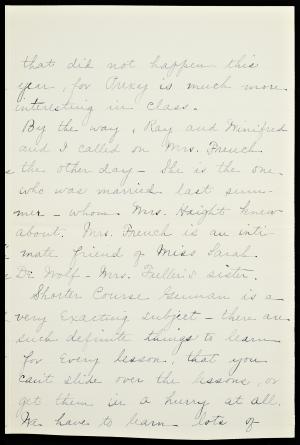 that did not happen this
year, for Prexy is much more
interesting in class.
By the way, Ray and Winifred
and I called on Mrs. French
the other day - She is the one
who was married last sum-
mer - whom Mrs. Haight knew
about. Mrs. French is an inti-
mate friend of Miss Sarah
De Wolf - Mrs. Fuller's sister.
Shorter Course German is a
very exacting subject - there are
such definite things to learn
for every lesson, that you
can't slide over the lessons, or
get them in a hurry at all.
We have to learn lots of